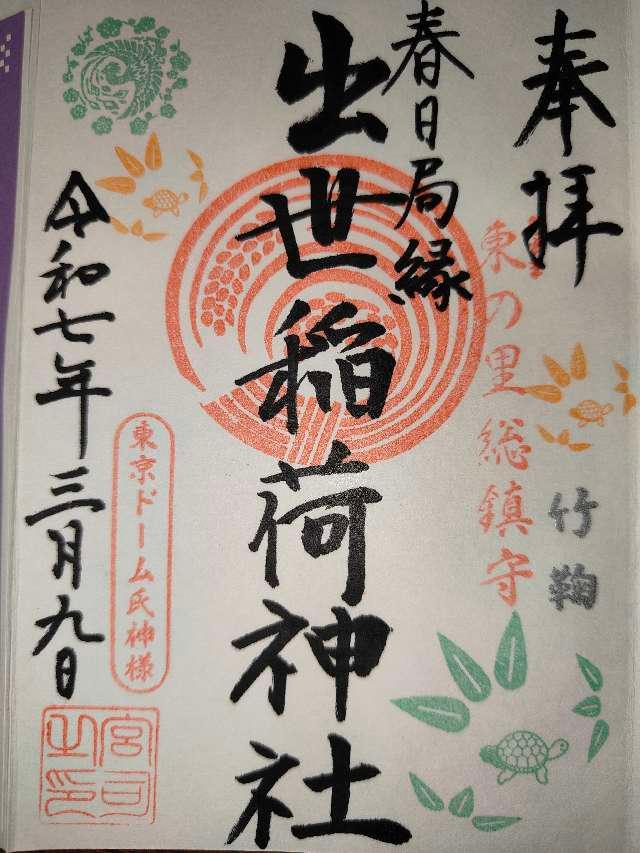 奉拝
竹鞠
東の里総鎮守
春日局縁
出世稲荷神社
東京ドーム氏神様
令和七年三月九日
宮司之印